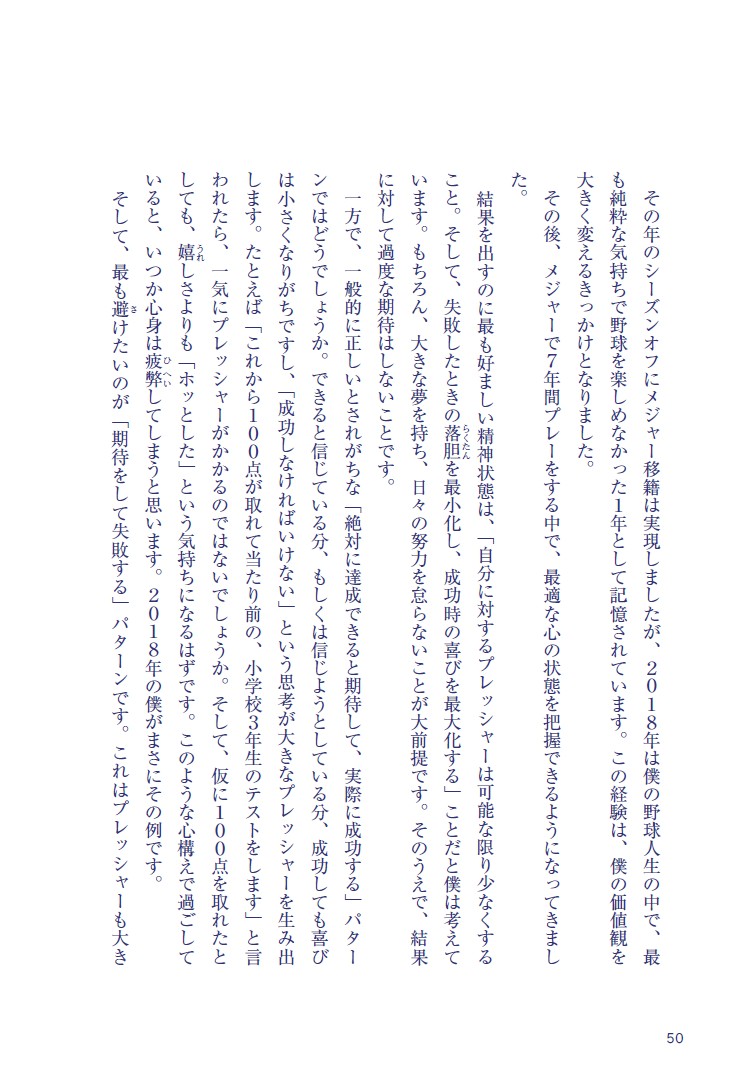 その年のシーズンオフにメジャー移籍は実現しましたが、2018年は僕の野球人生の中で、最
も純粋な気持ちで野球を楽しめなかった1年として記憶されています。この経験は、僕の価値観を
大きく変えるきっかけとなりました。
その後、メジャーで7年間プレーをする中で、最適な心の状態を把握できるようになってきまし
た。
結果を出すのに最も好ましい精神状態は、「自分に対するプレッシャーは可能な限り少なくする
こと。そして、失敗したときの落胆を最小化し、成功時の喜びを最大化する」ことだと僕は考えて
います。もちろん、大きな夢を持ち、日々の努力を怠らないことが大前提です。そのうえで、結果
に対して過度な期待はしないことです。
一方で、一般的に正しいとされがちな「絶対に達成できると期待して、実際に成功する」パター
ンではどうでしょうか。できると信じている分、もしくは信じようとしている分、成功しても喜び
は小さくなりがちですし、「成功しなければいけない」という思考が大きなプレッシャーを生み出
します。たとえば「これから100点が取れて当たり前の、小学校3年生のテストをします」と言
われたら、一気にプレッシャーがかかるのではないでしょうか。そして、仮に100点を取れたと
しても、嬉しさよりも「ホッとした」という気持ちになるはずです。このような心構えで過ごして
いると、いつか心身は疲弊してしまうと思います。2018年の僕がまさにその例です。
そして、最も避けたいのが「期待をして失敗する」パターンです。これはプレッシャーも大き
50